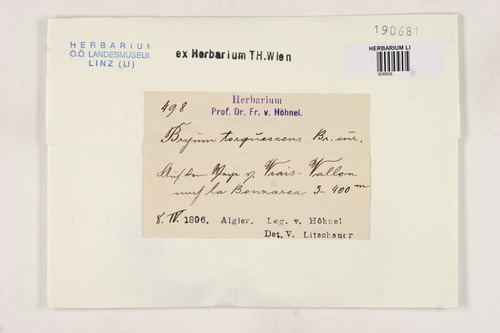 190681
HERBARIUM
O.Ö. LANDESMUSEUM
LINZ (LI)
ex Herbarium TH.Wien
HERBARIUM LI
498
Herbarium
Prof. Dr. Fr. v. Höhnel.
Bryum torquescens Br. eur.
Auf dem v. Vrais-Vallon
nach la Bouzarea 3-400 m
8. IV. 1896. Algier. Leg. v. Höhnel
Det. V. Litschauer